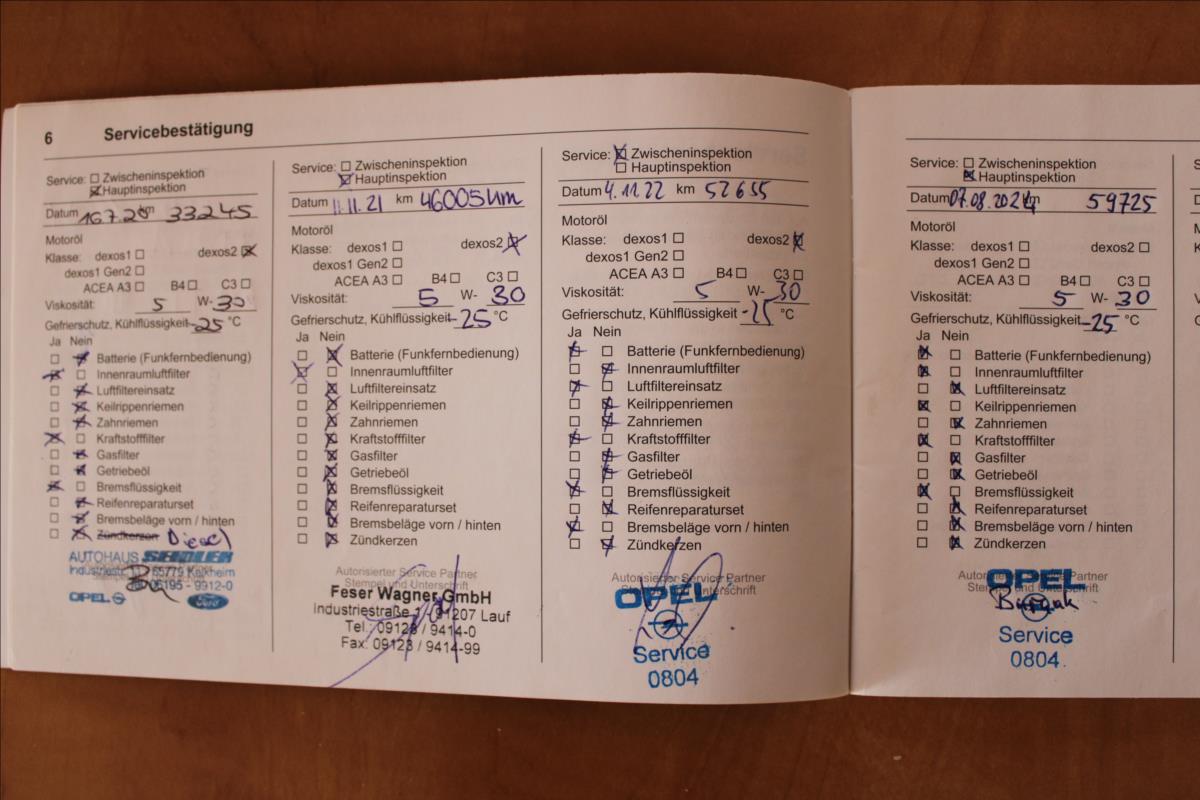 6 Servicebestätigung
Service: Zwischeninspektion
Hauptinspektion
Datum 16.7.20 km 33245
Motoröl
Klasse: dexos1 dexos2
dexos1 Gen2
ACEA A3 B4 C3
Viskosität: 5 W- 30
Gefrierschutz, Kühlflüssigkeit -25 °C
Ja Nein
Batterie (Funkfernbedienung)
Innenraumluftfilter
Luftfiltereinsatz
Keilrippenriemen
Zahnriemen
Kraftstofffilter
Gasfilter
Getriebeöl
Bremsflüssigkeit
Reifenreparaturset
Bremsbeläge vorn / hinten
Zündkerzen Diesel
AUTOHAUS
Industriestr. 65779 Kelkheim
06195 - 9912-0
OPEL Ford
Service: Zwischeninspektion
Hauptinspektion
Datum 11.11.21 km 46005 km
Motoröl
Klasse: dexos1 dexos2
dexos1 Gen2
ACEA A3 B4 C3
Viskosität: 5 W- 30
Gefrierschutz, Kühlflüssigkeit -25 °C
Ja Nein
Batterie (Funkfernbedienung)
Innenraumluftfilter
Luftfiltereinsatz
Keilrippenriemen
Zahnriemen
Kraftstofffilter
Gasfilter
Getriebeöl
Bremsflüssigkeit
Reifenreparaturset
Bremsbeläge vorn / hinten
Zündkerzen
Autorisierter Service Partner
Stempel und Unterschrift
Feser Wagner GmbH
Industriestraße 1 91207 Lauf
Tel. 09123 / 9414-0
Fax: 09123 / 9414-99
Service: Zwischeninspektion
Hauptinspektion
Datum 4.11.22 km 52655
Motoröl
Klasse: dexos1 dexos2
dexos1 Gen2
ACEA A3 B4 C3
Viskosität: 5 W- 30
Gefrierschutz, Kühlflüssigkeit -25 °C
Ja Nein
Batterie (Funkfernbedienung)
Innenraumluftfilter
Luftfiltereinsatz
Keilrippenriemen
Zahnriemen
Kraftstofffilter
Gasfilter
Getriebeöl
Bremsflüssigkeit
Reifenreparaturset
Bremsbeläge vorn / hinten
Zündkerzen
Autorisierter Service Partner
Stempel und Unterschrift
OPEL
Service
0804
Service: Zwischeninspektion
Hauptinspektion
Datum 07.08.2024 km 59725
Motoröl
Klasse: dexos1 dexos2
dexos1 Gen2
ACEA A3 B4 C3
Viskosität: 5 W- 30
Gefrierschutz, Kühlflüssigkeit -25 °C
Ja Nein
Batterie (Funkfernbedienung)
Innenraumluftfilter
Luftfiltereinsatz
Keilrippenriemen
Zahnriemen
Kraftstofffilter
Gasfilter
Getriebeöl
Bremsflüssigkeit
Reifenreparaturset
Bremsbeläge vorn / hinten
Zündkerzen
Autorisierter Service Partner
Stempel und Unterschrift
OPEL
Service
0804